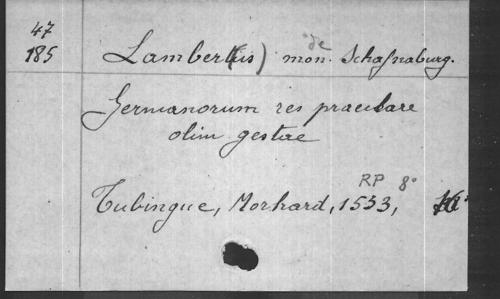 47
185
Lambert(us) mon. de Schafnaburg.
Germanorum res praeclare
olim gestae
RP 8°
Tubingue, Morhard, 1533,